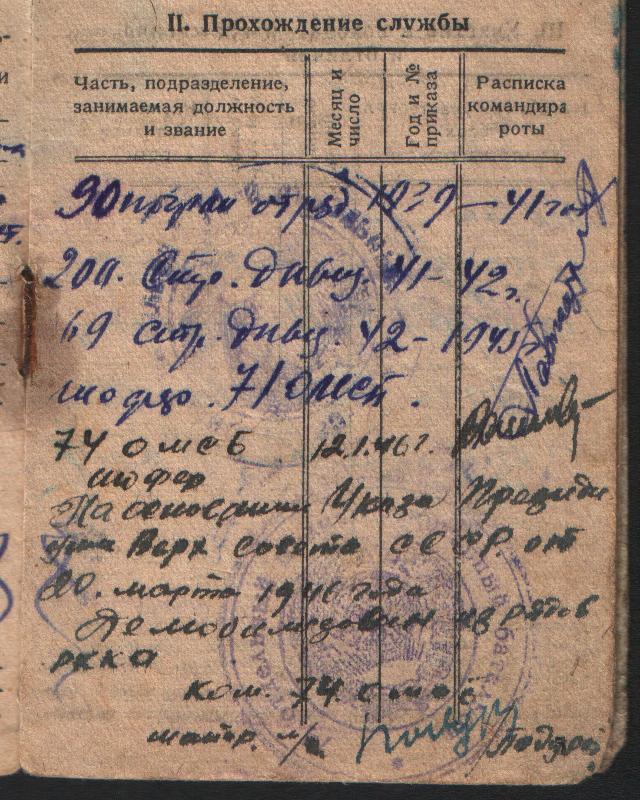 II. Прохождение службы
Часть, подразделение, занимаемая должность и звание
Месяц и число
Год и № приказа
Расписка командира роты
90 погран отряд 1939 — 41 год
200. Стр. дивиз. 41 - 42 г.
69 стр. дивиз. 42 - 1945
шофер. 71 омсб.
74 омсб 12.1.46 г.
шофер
На основании Указа Президи
ума Верх совета СССР. от
20. марта 1946 года
Демобилизован из рядов
РККА
Ком. 74. омсб